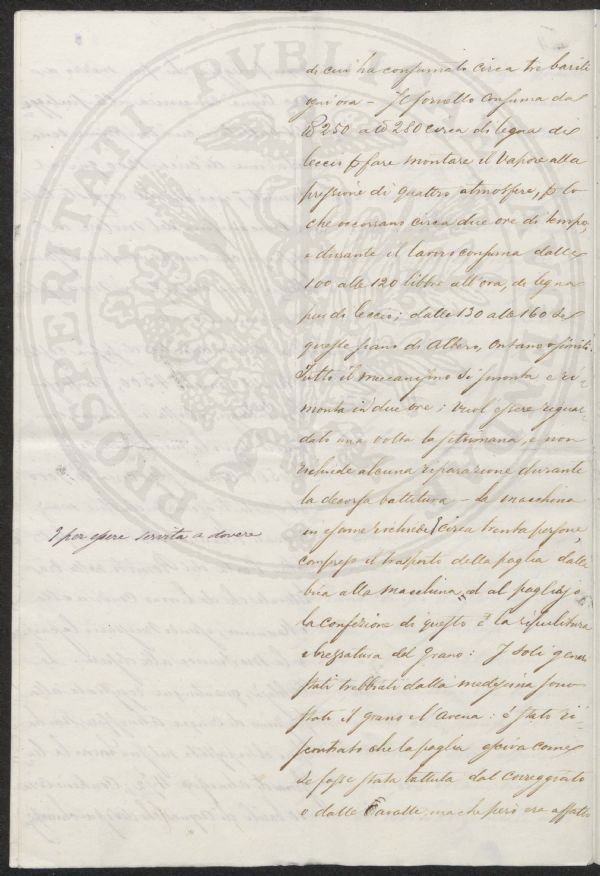 di cui ha consumato circa tre barili
ogni ora – Il fornello consuma da
℔ 250 a ℔ 280 circa di legna di
leccio p fare montare il Vapore alla
pressione di quattro atmosfere, p lo
che occorrano circa due ore di tempo,
e durante il lavoro consuma dalle
100 alle 120 libbre all'ora, di legna
pur di leccio; dalle 130 alle 160 se
queste siano di Albero, Ontano o simili.
Tutto il meccanismo si smonta e ri-
monta in due ore; vuol essere riguar-
dato una volta la settimana, e non
richiede alcuna riparazione durante
la decorsa battitura – La macchina
in esame richiede circa trenta persone,
compreso il trasporto della paglia dalla
bica alla macchina, ed al pagliajo
la confezione di questo e la ripulitura
e brezzatura del grano: I soli generi
stati trebbiati dalla medesima sono
stati il grano e l'avena: è stato ri-
scontrato che la paglia esciva come
se fosse stata battuta dal Coreggiato
o dalle Cavalle, ma che però era affatto
p esser servita a dovere
PROSPERITATI PVBLICAE